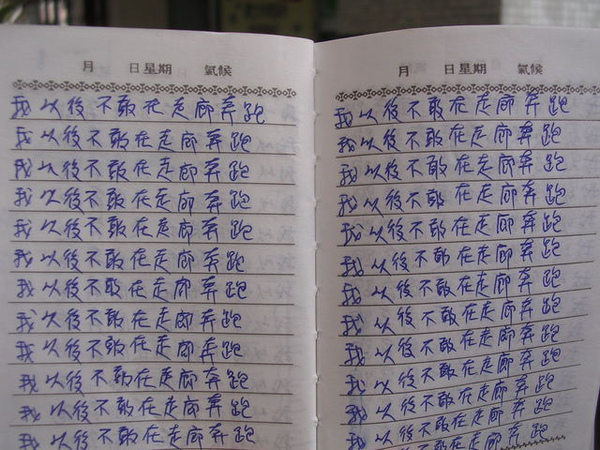 月 日星期 氣候
我以後不敢在走廊奔跑
我以後不敢在走廊奔跑
我以後不敢在走廊奔跑
我以後不敢在走廊奔跑
我以後不敢在走廊奔跑
我以後不敢在走廊奔跑
我以後不敢在走廊奔跑
我以後不敢在走廊奔跑
我以後不敢在走廊奔跑
我以後不敢在走廊奔跑
我以後不敢在走廊奔跑
我以後不敢在走廊奔跑
月 日星期 氣候
我以後不敢在走廊奔跑
我以後不敢在走廊奔跑
我以後不敢在走廊奔跑
我以後不敢在走廊奔跑
我以後不敢在走廊奔跑
我以後不敢在走廊奔跑
我以後不敢在走廊奔跑
我以後不敢在走廊奔跑
我以後不敢在走廊奔跑
我以後不敢在走廊奔跑
我以後不敢在走廊奔跑
我以後不敢在走廊奔跑
在走廊奔跑